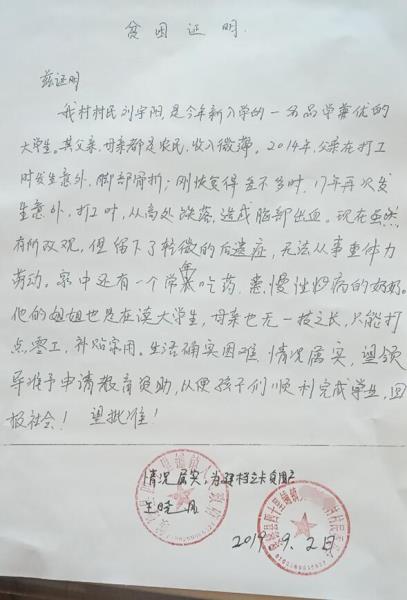 贫困证明.
兹证明
我村村民刘宇阳,是今年新入学的一名品学兼优的
大学生。其父亲,母亲都是农民,收入微薄。2014年,父亲在打工
时发生意外,脚部骨折;刚恢复得差不多时,17年再次发
生意外,打工时,从高处跌落,造成脑部出血。现在虽然
有所改观,但留下了轻微的后遗症,无法从事重体力
劳动。家中还有一个常年吃药,患慢性病的奶奶。
他的姐姐也是在读大学生,母亲也无一技之长,只能打
点零工,补贴家用。生活确实困难,情况属实,望领
导准予申请教育资助,以便孩子们顺利完成学业,回
报社会!望批准!
情况属实,为建档立卡贫困户
2019.9.2日